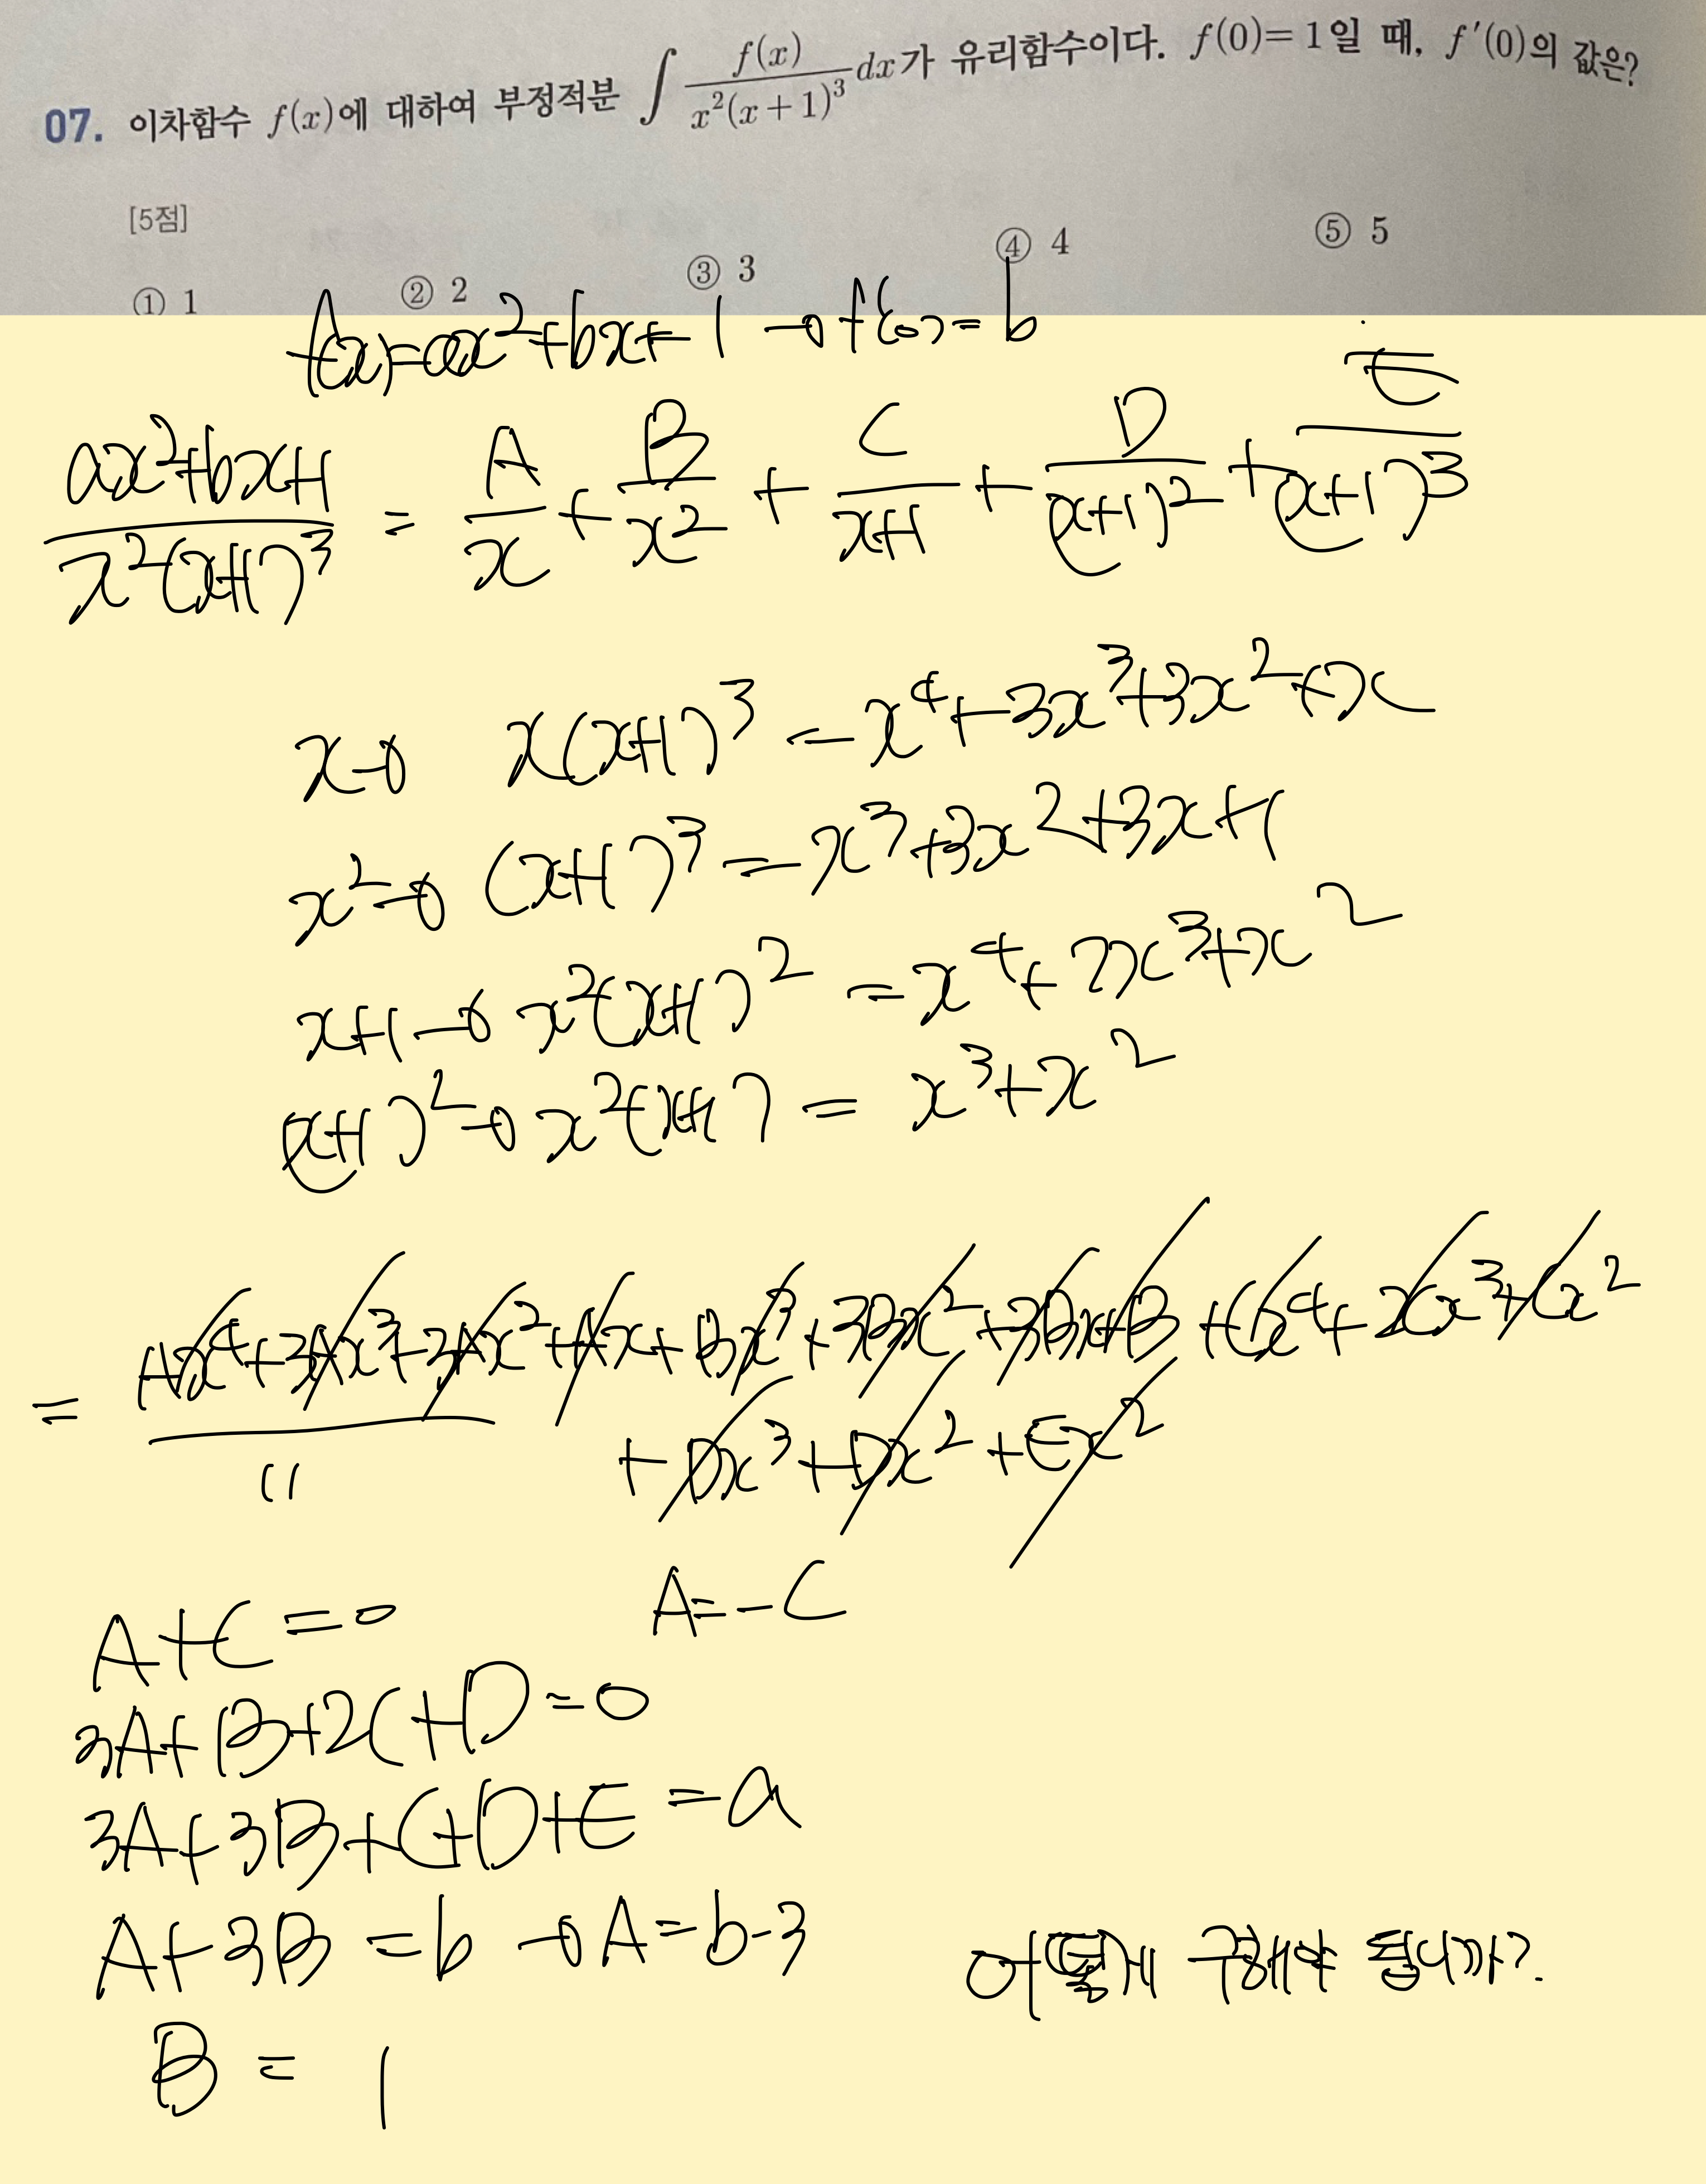 07. 이차함수 f(x)에 대하여 부정적분 ∫ f(x)/(x²(x+1)³) dx가 유리함수이다. f(0)=1일 때, f′(0)의 값은?
[5점]
① 1 ② 2 ③ 3 ④ 4 ⑤ 5
f(x)=ax²+bx+1 → f′(0)=b
(ax²+bx+1)/(x²(x+1)³) = A/x + B/x² + C/(x+1) + D/(x+1)² + E/(x+1)³
x→ x(x+1)³ = x⁴+3x³+3x²+x
x²→ (x+1)³ = x³+3x²+3x+1
x+1→ x²(x+1)² = x⁴+2x³+x²
(x+1)²→ x²(x+1) = x³+x²
= Ax⁴+3Ax³+3Ax²+Ax+Bx³+3Bx²+3Bx+B+Cx⁴+2Cx³+Cx²
+Dx³+Dx²+Ex²
〃
A+C=0 A=-C
3A+B+2C+D=0
3A+3B+C+D+E=a
A+3B=b → A=b-3
B=1
어떻게 구해야 됩니까?